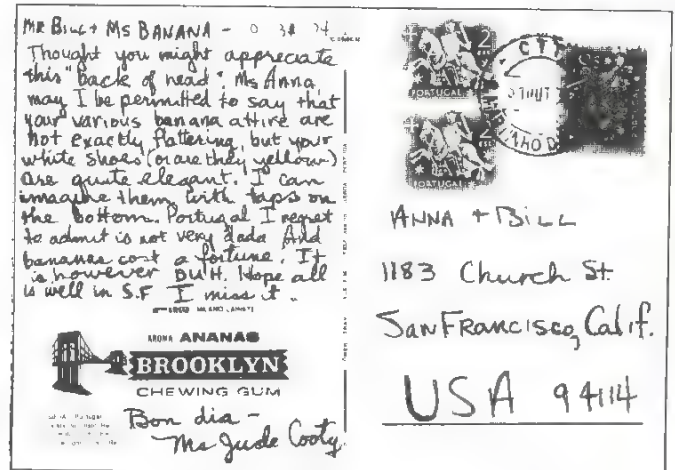 MR BILL + MS BANANA -
Thought you might appreciate
this "back of head". Ms Anna,
may I be permitted to say that
your various banana attire are
not exactly flattering, but your
white shoes (or are they yellow)
are quite elegant. I can
imagine them with taps on
the bottom. Portugal I regret
to admit is not very dada And
bananas cost a fortune. It
is however Hope all
is well in S.F I miss it.
AROMA ANANAS
BROOKLYN
CHEWING GUM
Bon dia -
Ms Jude Cooty.
PORTUGAL
PORTUGAL
CTT
ANNA + BILL
1183 Church St.
San Francisco, Calif.
USA 94114